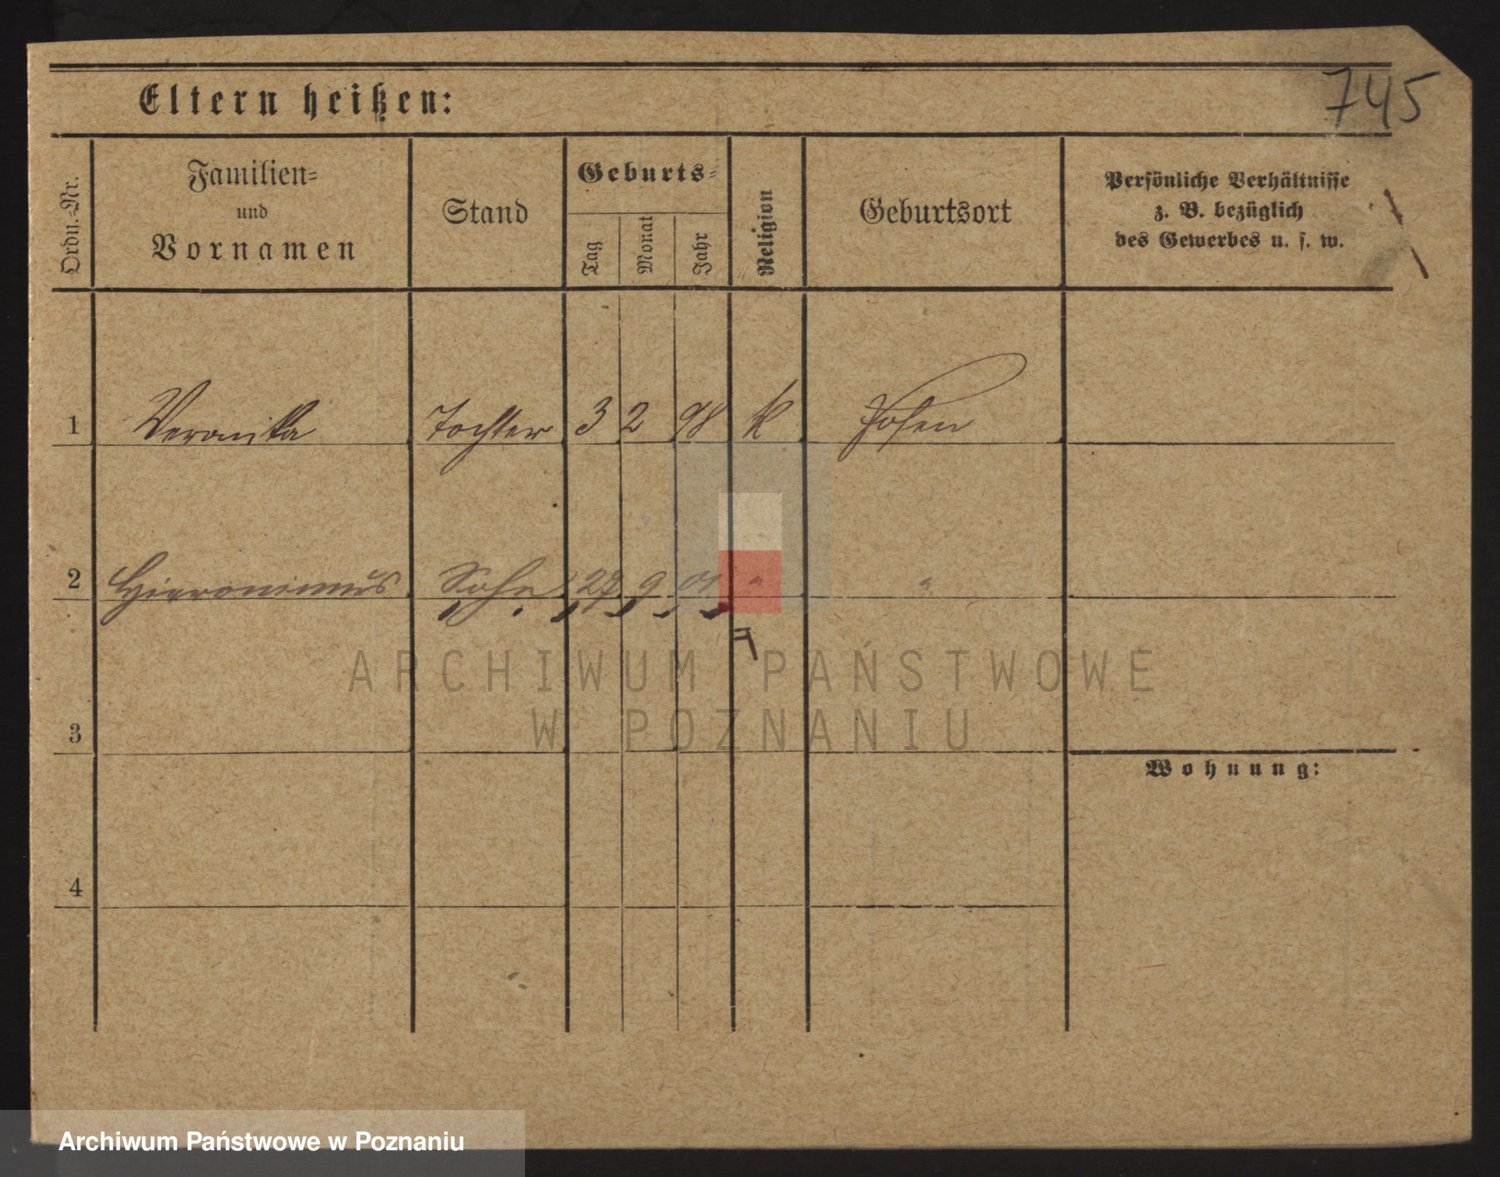 745
Eltern heißen:
Ordn.-Nr.
Familien-
und
Vornamen
Stand
Geburts-
Tag
Monat
Jahr
Religion
Geburtsort
Persönliche Verhältnisse
z. B. bezüglich
des Gewerbes u. s. w.
1 Veronika Tochter 3 2 98 k Posen
2 Hieronimus Sohn 27 9 01 " "
ARCHIWUM PAŃSTWOWE
W POZNANIU
3
Wohnung:
4
Archiwum Państwowe w Poznaniu